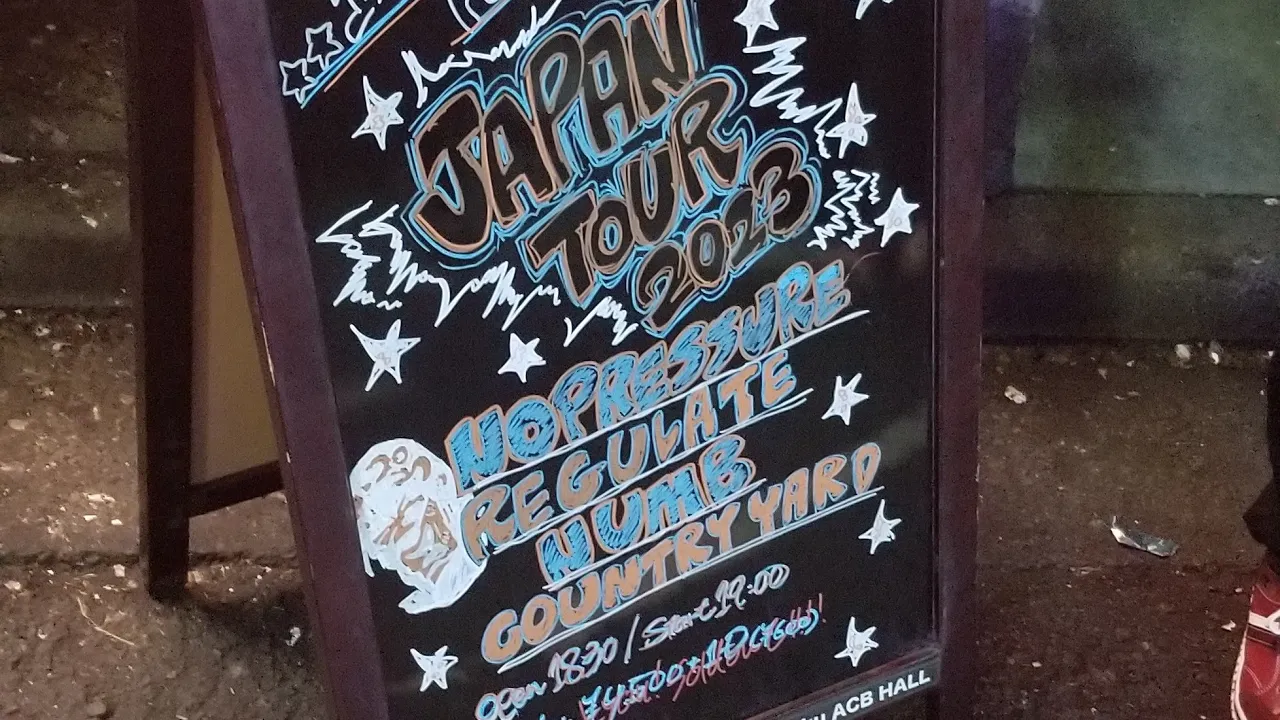 JAPAN
TOUR
2023
NO PRESSURE
REGULATE
NUMB
COUNTRY YARD
Open 18:30 / Start 19:00
ACB HALL